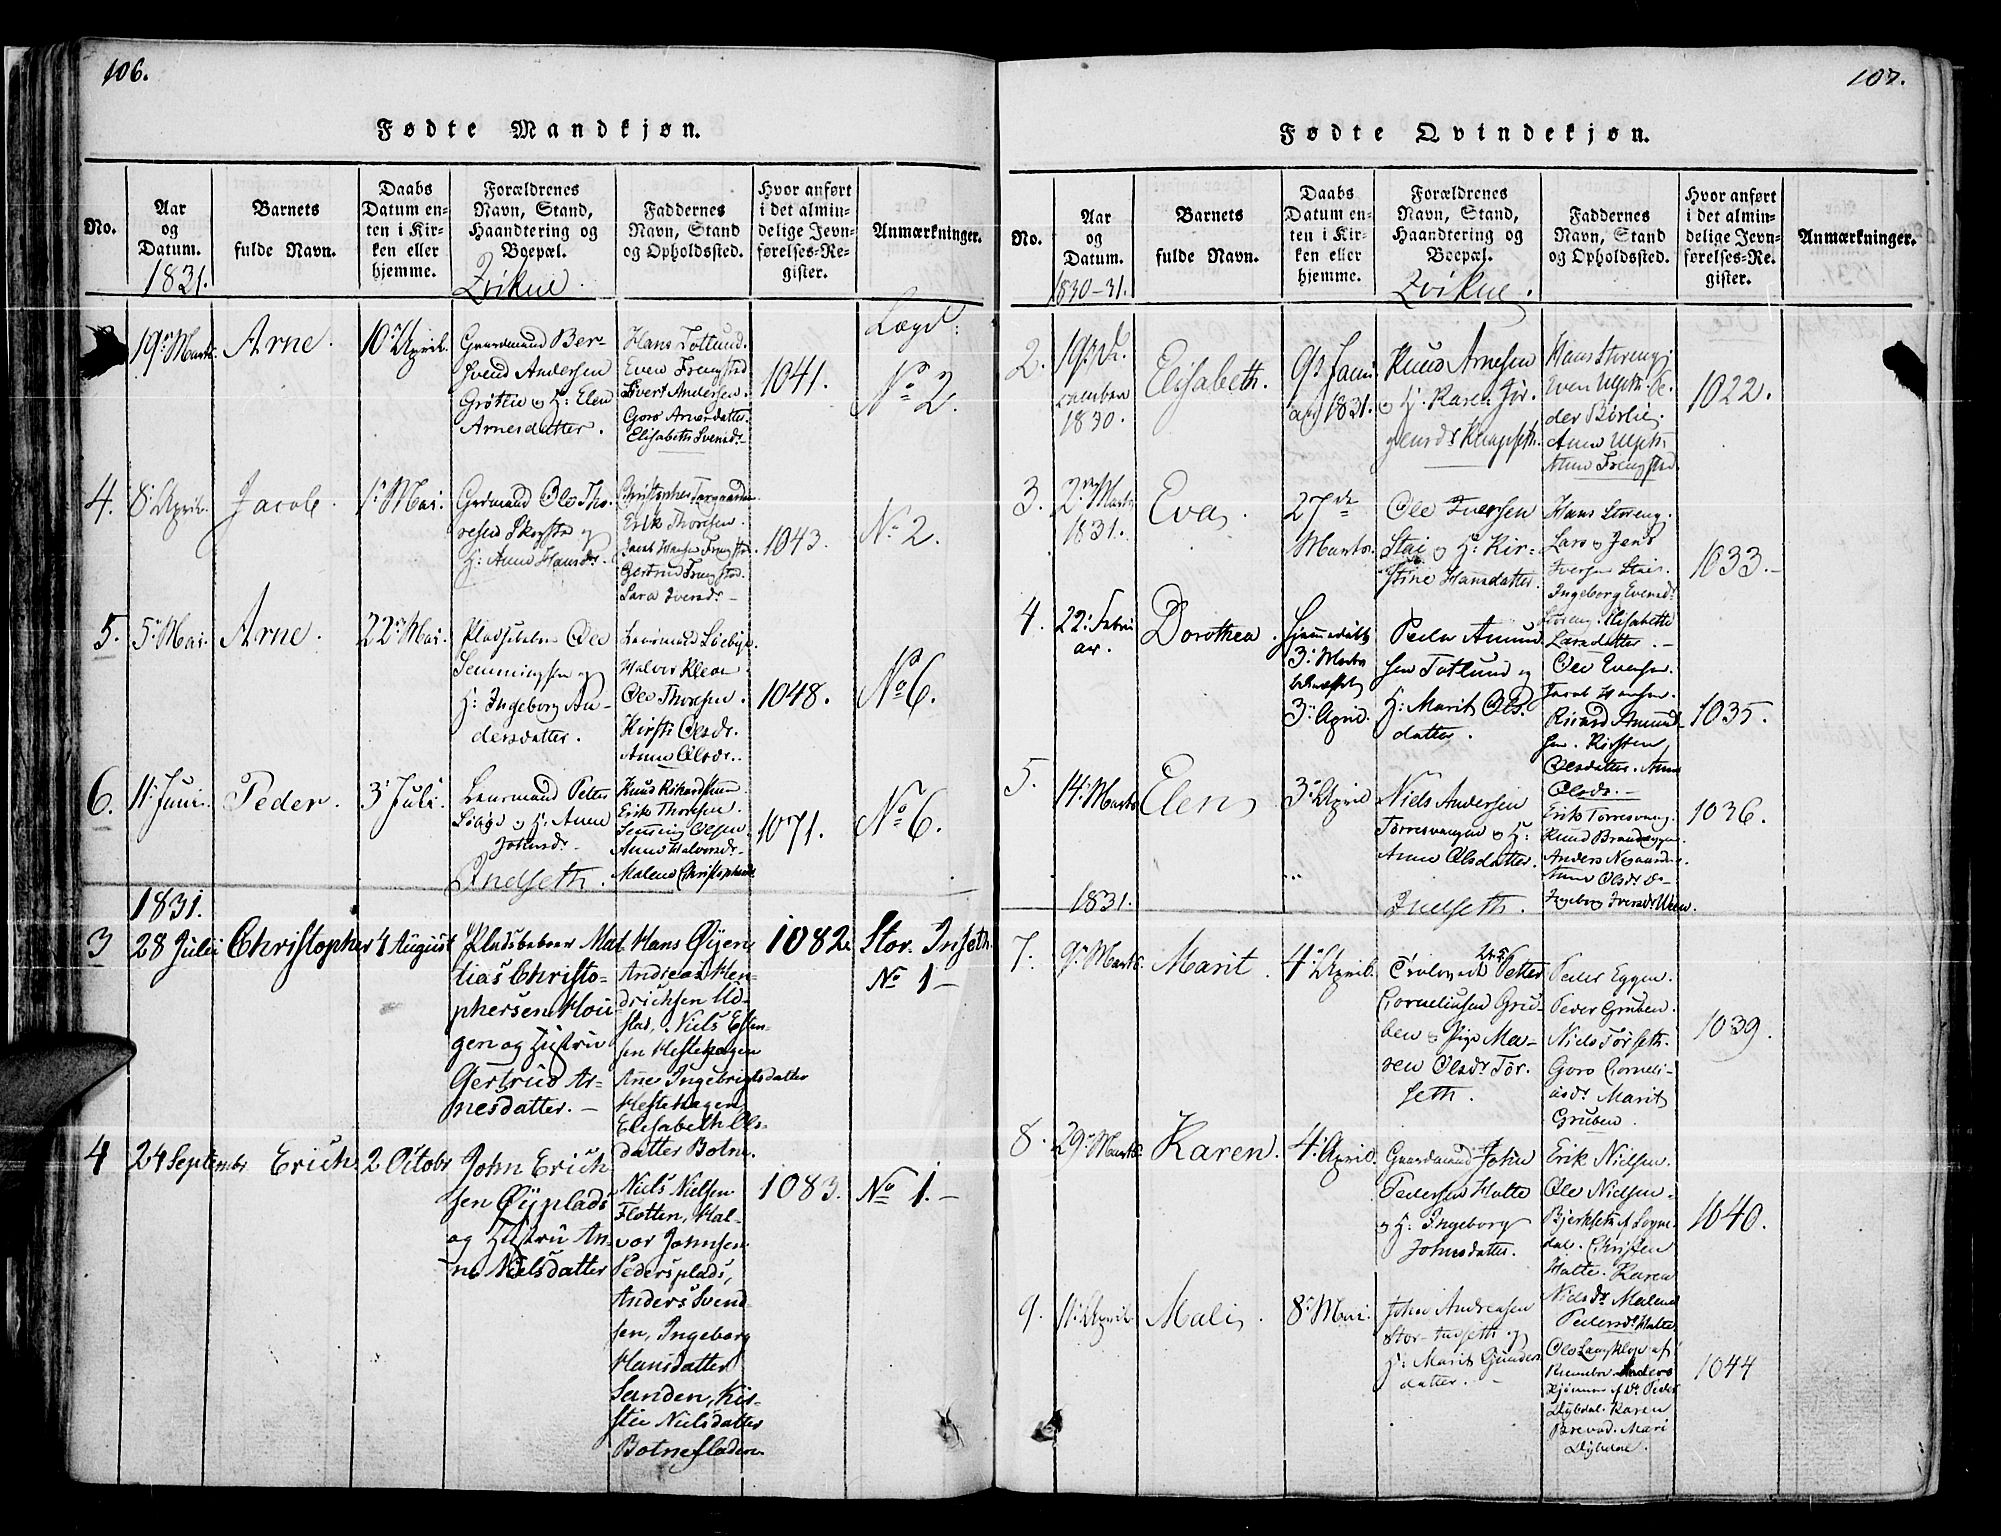 106.
Fødte Mandkjøn.
No.
Aar
og
Datum.
1831.
Barnets
fulde Navn.
Daabs
Datum en-
ten i Kir-
ken eller
hjemme.
Forældrenes
Navn, Stand,
Haandtering og
Boepæl.
Qvikne.
Faddernes
Navn, Stand
og Opholdssted.
Hvor anført
i det almin-
delige Jevn-
førelses-Re-
gister.
Anmærkninger.
19de Marts.
Arne.
10de April.
Gaardmand Ber-
svend Andersen
Grøtlie og H: Elen
Arnesdatter.
Hans Totlund.
Even Frengstad
Sivert Andersen.
Goro Arnesdatter.
Elisabeth Svensdr
1041.
Lægd:
No 2.
4.
8: April.
Jacob.
1: Mai.
Grdmand Ole Tho-
resen og
H: Anne Hansdr.
Erik Thoresen.
Jacob Hansen Frengstad
Gertrud Frengstad.
Sara Iversdr
1043.
No 2.
5.
5: Mai.
Arne.
22: Mai.
Ole
Semmingsen og
H: Ingeborg An-
dersdatter.
Halvor
Ole Thoresen.
Kirsti Olsdr.
Anne Olsdr.
1048.
No 6.
6.
11: Juni.
Peder.
3: Juli.
Petter
og H: Anne
Johnsdr
Knud Rikardsen
Erik Thoresen.
Semming Olsen
Anne Halvorsdr
Malene Christophersdr
1071.
No 6.
1831.
Indseth.
3
28 Julii
Christopher
4 August
Pladsbeboer Mat-
tias Christo-
phersen Hou-
gen og Hustru
Gertrud Ar-
nesdatter.
Hans Øyen
Andreas Hen-
drichsen Ud-
stad, Niels Esten-
sen Hestehagen
Ane Ingebrigtsdatter
Hestehagen
Elisabeth Ols-
datter Botne.
1082
Stor Inseth.
No 1
4
24 Septembr
Erich.
2 Octobr
John Erich
sen Øyplads
og Hustru An-
ne Nielsdatter
Niels Nielsen
Flotten, Hal-
vor Johnsen
Pedersplads,
Anders Svend-
sen, Ingeborg
Hansdatter
Sanden, Kir-
stie Nielsdatter
Botnesladen.
1083.
No 1.
107.
Fødte Qvindekjøn.
No.
Aar
og
Datum.
1830-31.
Barnets
fulde Navn.
Daabs
Datum en-
ten i Kir-
ken eller
hjemme.
Forældrenes
Navn, Stand,
Haandtering og
Boepæl.
Qvikne.
Faddernes
Navn, Stand
og Opholdssted.
Hvor anført
i det almin-
delige Jevn-
førelses-Re-
gister.
Anmærkninger.
2.
19de De-
cember
1830.
Elisabeth.
9de Janu
ar 1831.
Knud Arnesen
og H. Karen Jør-
gensdr
Hans Storeng
Anne Frengstad
1022.
3.
2den Marts
1831.
Eva.
27de
Marts.
Ole Iversen
Stai og H: Kir-
stine Hansdatter.
Hans Storeng.
Lars og Jens
Iversen Stai.
Ingeborg Evensdr
Storeng. Elisabeth
Larsdatter.
1033.
4.
22: Febru
ar.
Dorothea.
Hjemmedøbt
3: Marts
3: April.
Peder Amund
sen Totlund og
H: Marit Ols-
datter.
Ole Evensen.
Jacob Hansen.
Rikard Amund-
sen. Kirsten
Olsdatter. Anne
Olsdr.
1035.
5.
14: Marts
Elen
3: April
Niels Andersen
Torresvangen og H:
Anne Olsdatter.
Erik Torresvang.
Knud Brandeggen.
Anders Nygaard.
Anne Olsdr
Ingeborg Iversdr
1036.
1831.
Indseth.
7.
9: Marts.
Marit.
4: April.
Petter
Corneliusen Gru-
ben og Pige Ma-
ren Olsdr Tør-
seth.
Peder Eggen.
Peder Gruben.
Niels Tørseth.
Goro Corneli-
usdr Marit
Gruben.
1039.
8.
29: Marts.
Karen.
4: April.
Gaardmand John
Pedersen Holte
og H: Ingeborg
Johnsdatter.
Erik Nielsen.
Ole Nielsen
Christen
Holte. Karen
Nielsdr Malene
Pedersdr Holte
1040.
9.
11: April.
Mali.
8: Mai.
John Andreasen
Stor-Indseth og
H: Marit Gunders
datter.
Anders
Peder
Dybdal. Karen
Mari
1044